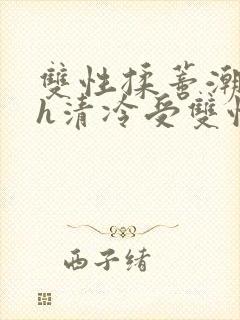 雙性揉蒂潮
h清冷受雙性
西子绪